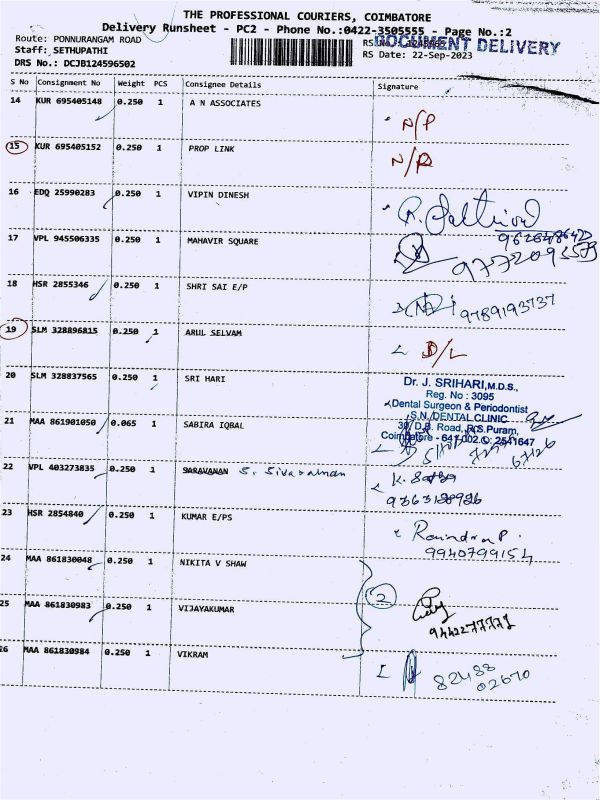 THE PROFESSIONAL COURIERS, COIMBATORE
Delivery Runsheet - PC2 - Phone No.:0422-3505555 - Page No.:2
DOCUMENT DELIVERY
Route: PONNURANGAM ROAD
Staff: SETHUPATHI
RS Date: 22-Sep-2023
DRS No.: DCJB124596502
S No Consignment No Weight PCS Consignee Details Signature
14 KUR 695405148 0.250 1 A N ASSOCIATES
N/P
15 KUR 695405152 0.250 1 PROP LINK
16 EDQ 25990283 0.250 1 VIPIN DINESH
17 VPL 945506335 0.250 1 MAHAVIR SQUARE
18 HSR 2855346 0.250 1 SHRI SAI E/P
9789193737
19 SLM 328896815 0.250 1 ARUL SELVAM
D/L
20 SLM 328837565 0.250 1 SRI HARI
Dr. J. SRIHARI, M.D.S.,
Reg. No : 3095
Dental Surgeon & Periodontist
S.N. DENTAL CLINIC
30/ D.B. Road, R.S.Puram,
Coimbatore - 641 002. : 2541647
21 MAA 861901050 0.065 1 SABIRA IQBAL
22 VPL 403273835 0.250 1 SARAVANAN S. Sivaraman
23 HSR 2854840 0.250 1 KUMAR E/PS
Ravindran P.
9940799154
24 MAA 861830048 0.250 1 NIKITA V SHAW
2
25 MAA 861830983 0.250 1 VIJAYAKUMAR
9442277771
26 MAA 861830984 0.250 1 VIKRAM
82488
02670